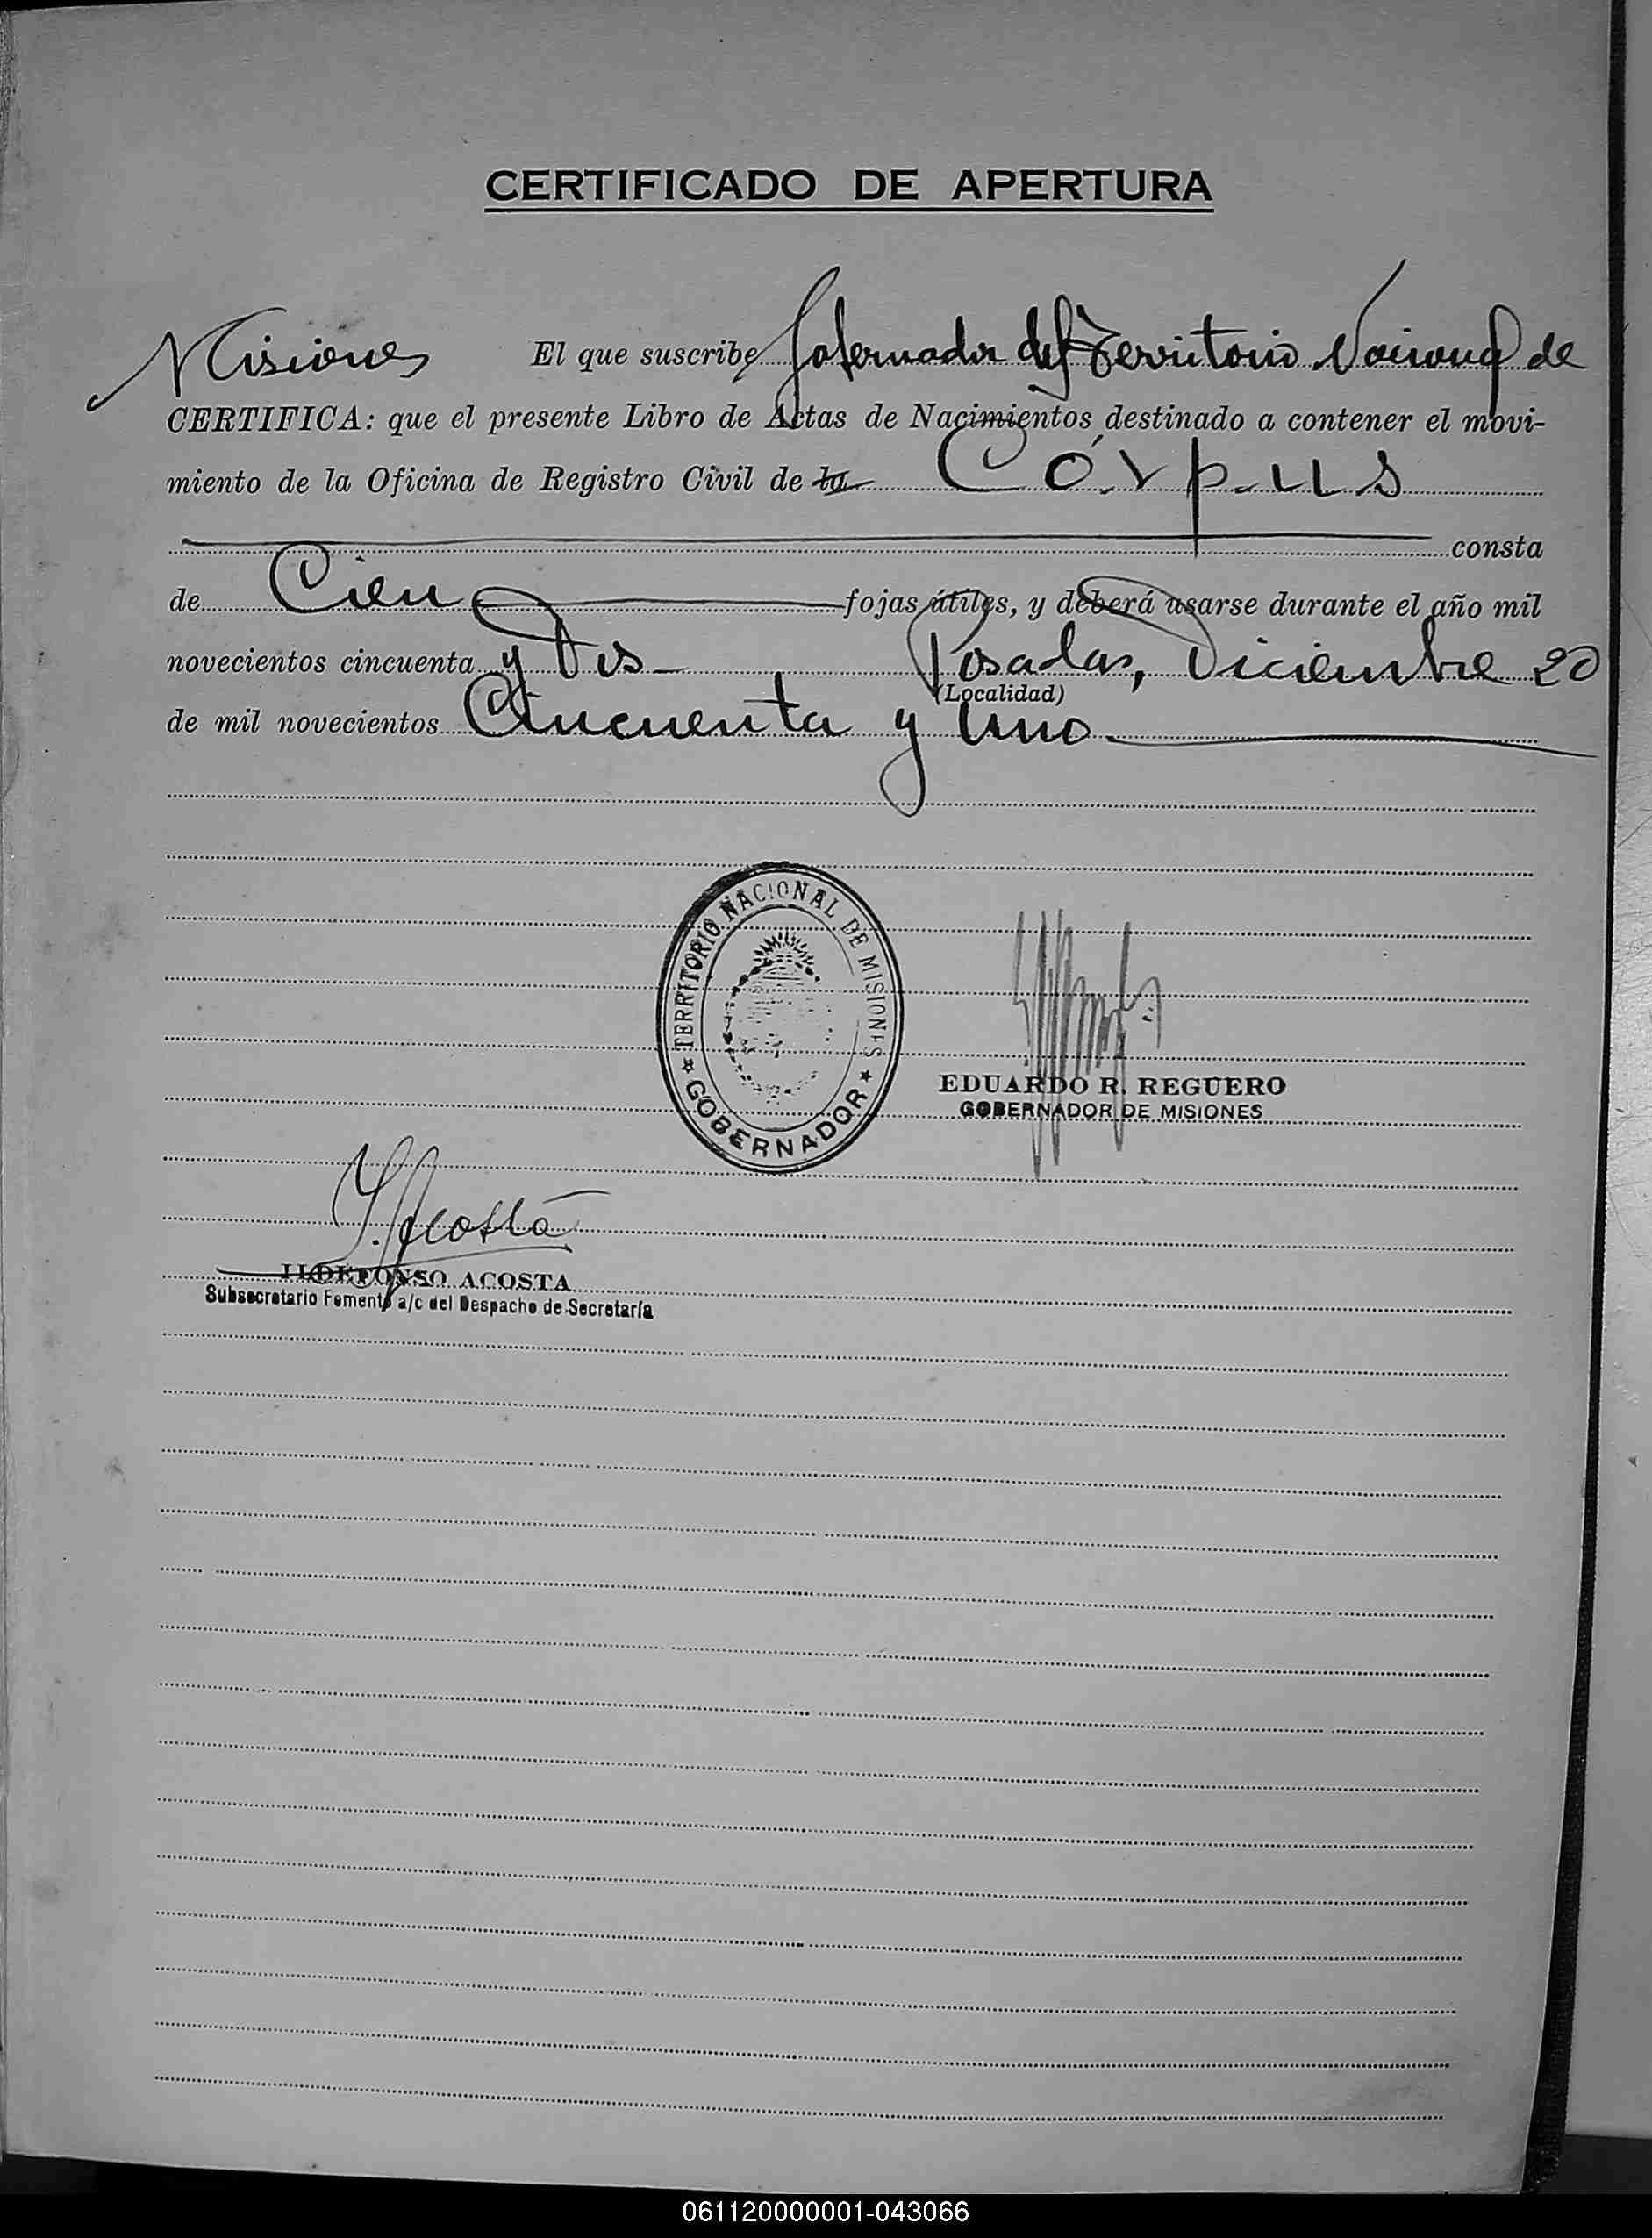 CERTIFICADO DE APERTURA
El que suscribe Gobernador del Territorio Nacional de
Misiones
CERTIFICA: que el presente Libro de Actas de Nacimientos destinado a contener el movi-
miento de la Oficina de Registro Civil de la Córpus
consta
de Cien fojas útiles, y deberá usarse durante el año mil
novecientos cincuenta y Dos Posadas, Diciembre 20
(Localidad)
de mil novecientos Cincuenta y Uno
TERRITORIO NACIONAL DE MISIONES
GOBERNADOR
EDUARDO R. REGUERO
GOBERNADOR DE MISIONES
I. Acosta
ILDEFONSO ACOSTA
Subsecretario Fomento a/c del Despacho de Secretaría
061120000001-043066